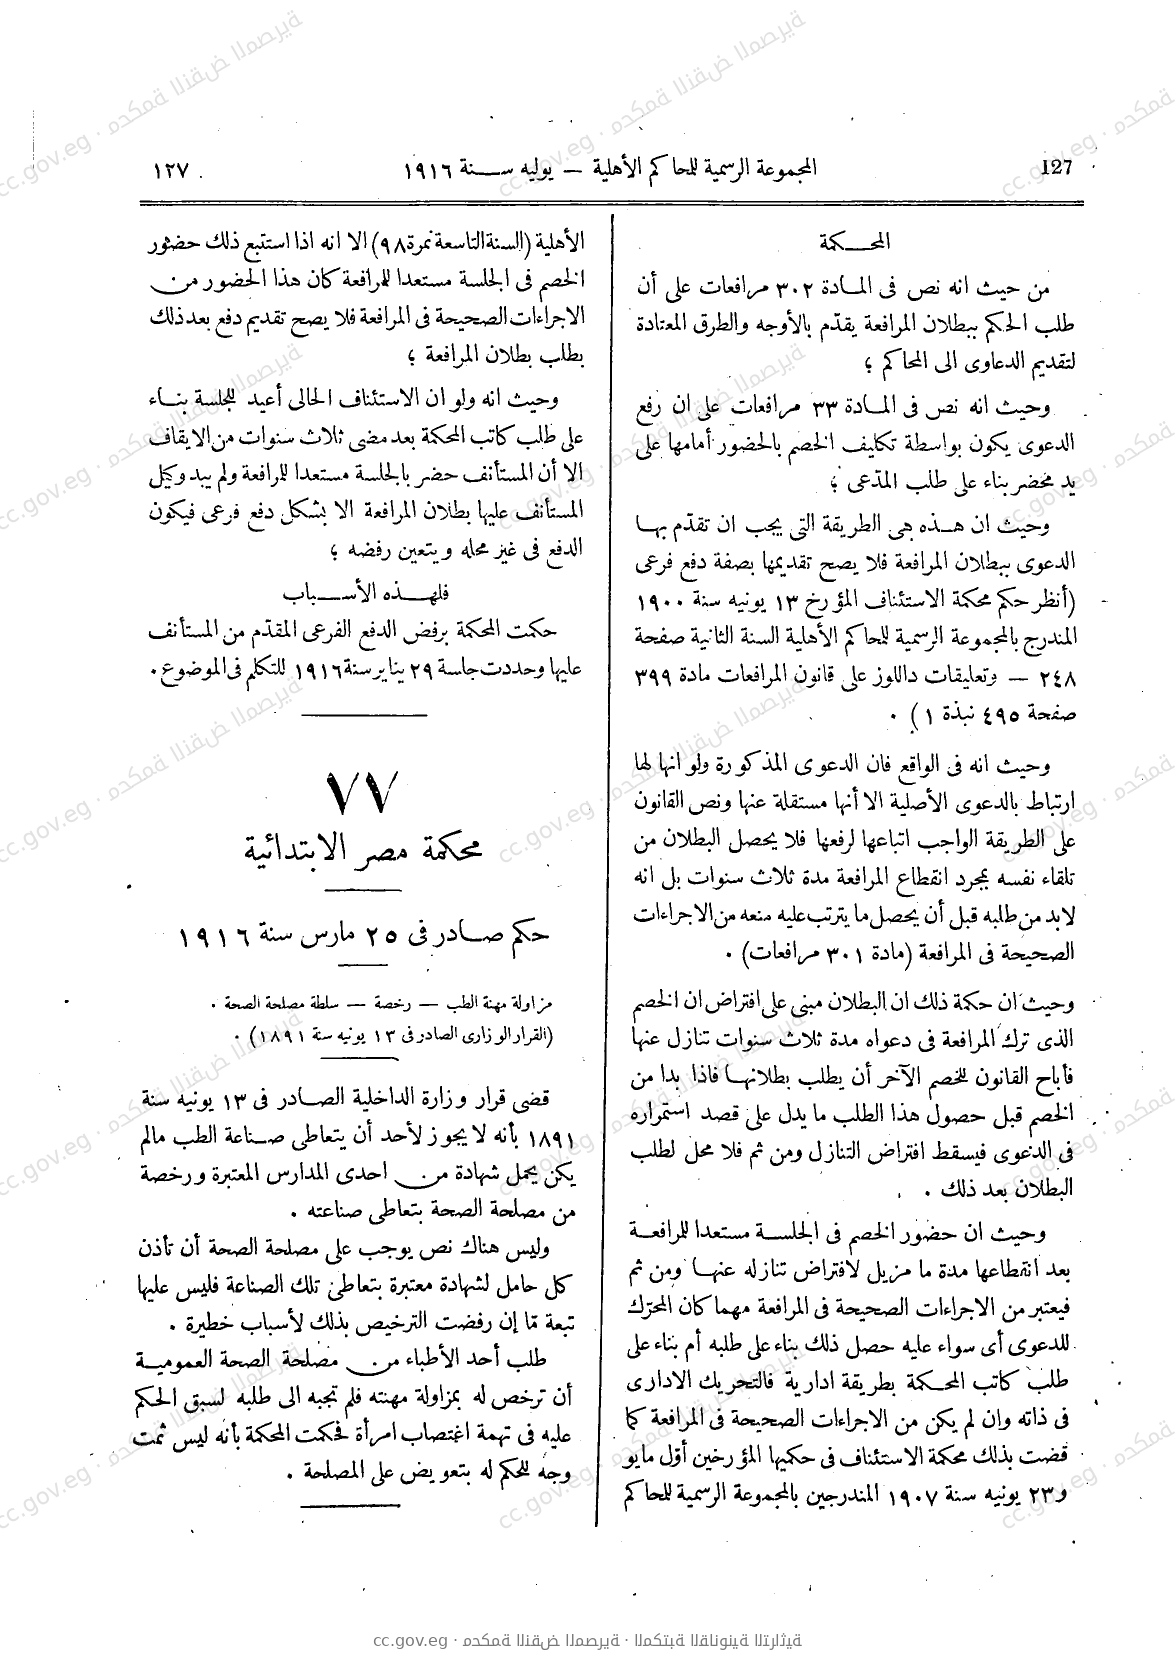 127
المجموعة الرسمية للمحاكم الأهلية — يوليه سنة ١٩١٦
١٢٧
المحكمة
من حيث انه نص فى المادة ٣٠٢ مرافعات على أن
طلب الحكم ببطلان المرافعة يقدّم بالأوجه والطرق المعتادة
لتقديم الدعاوى الى المحاكم ؛
وحيث انه نص فى المادة ٣٣ مرافعات على ان رفع
الدعوى يكون بواسطة تكليف الخصم بالحضور أمامها على
يد محضر بناء على طلب المدّعى ؛
وحيث ان هذه هى الطريقة التى يجب ان تقدّم بها
الدعوى ببطلان المرافعة فلا يصح تقديمها بصفة دفع فرعى
(أنظر حكم محكمة الاستئناف المؤرخ ١٣ يونيه سنة ١٩٠٠
المندرج بالمجموعة الرسمية للمحاكم الأهلية السنة الثانية صفحة
٢٤٨ — وتعليقات داللوز على قانون المرافعات مادة ٣٩٩
صفحة ٤٩٥ نبذة ١) .
وحيث انه فى الواقع فان الدعوى المذكورة ولو انها لها
ارتباط بالدعوى الأصلية الا أنها مستقلة عنها ونص القانون
على الطريقة الواجب اتباعها لرفعها فلا يحصل البطلان من
تلقاء نفسه بمجرد انقطاع المرافعة مدة ثلاث سنوات بل انه
لابد من طلبه قبل أن يحصل ما يترتب عليه منعه من الاجراءات
الصحيحة فى المرافعة (مادة ٣٠١ مرافعات) .
وحيث ان حكمة ذلك ان البطلان مبنى على افتراض ان الخصم
الذى ترك المرافعة فى دعواه مدة ثلاث سنوات تنازل عنها
فأباح القانون للخصم الآخر أن يطلب بطلانها فاذا بدا من
الخصم قبل حصول هذا الطلب ما يدل على قصد استمراره
فى الدعوى فيسقط افتراض التنازل ومن ثم فلا محل لطلب
البطلان بعد ذلك .
وحيث ان حضور الخصم فى الجلسة مستعدا للمرافعة
بعد انقطاعها مدة ما مزيل لافتراض تنازله عنها ومن ثم
فيعتبر من الاجراءات الصحيحة فى المرافعة مهما كان المحرّك
للدعوى أى سواء عليه حصل ذلك بناء على طلبه أم بناء على
طلب كاتب المحكمة بطريقة ادارية فالتحريك الادارى
فى ذاته وان لم يكن من الاجراءات الصحيحة فى المرافعة كما
قضت بذلك محكمة الاستئناف فى حكميها المؤرخين أوّل مايو
و٢٣ يونيه سنة ١٩٠٧ المندرجين بالمجموعة الرسمية للمحاكم
الأهلية (السنة التاسعة نمرة ٩٨) الا انه اذا استتبع ذلك حضور
الخصم فى الجلسة مستعدا للمرافعة كان هذا الحضور من
الاجراءات الصحيحة فى المرافعة فلا يصح تقديم دفع بعد ذلك
بطلب بطلان المرافعة ؛
وحيث انه ولو ان الاستئناف الحالى أعيد للجلسة بناء
على طلب كاتب المحكمة بعد مضى ثلاث سنوات من الايقاف
الا أن المستأنف حضر بالجلسة مستعدا للمرافعة ولم يبد وكيل
المستأنف عليها بطلان المرافعة الا بشكل دفع فرعى فيكون
الدفع فى غير محله ويتعين رفضه ؛
فلهذه الأسباب
حكمت المحكمة برفض الدفع الفرعى المقدّم من المستأنف
عليها وحددت جلسة ٢٩ يناير سنة ١٩١٦ للتكلم فى الموضوع .
٧٧
محكمة مصر الابتدائية
حكم صادر فى ٢٥ مارس سنة ١٩١٦
مزاولة مهنة الطب — رخصة — سلطة مصلحة الصحة .
(القرار الوزارى الصادر فى ١٣ يونيه سنة ١٨٩١) .
قضى قرار وزارة الداخلية الصادر فى ١٣ يونيه سنة
١٨٩١ بأنه لا يجوز لأحد أن يتعاطى صناعة الطب مالم
يكن يحمل شهادة من احدى المدارس المعتبرة ورخصة
من مصلحة الصحة بتعاطى صناعته .
وليس هناك نص يوجب على مصلحة الصحة أن تأذن
كل حامل لشهادة معتبرة بتعاطى تلك الصناعة فليس عليها
تبعة مّا إن رفضت الترخيص بذلك لأسباب خطيرة .
طلب أحد الأطباء من مصلحة الصحة العمومية
أن ترخص له بمزاولة مهنته فلم تجبه الى طلبه لسبق الحكم
عليه فى تهمة اغتصاب امرأة فحكمت المحكمة بأنه ليس ثمت
وجه للحكم له بتعويض على المصلحة .
cc.gov.eg · محكمة النقض المصرية · المكتبة القانونية التراثية